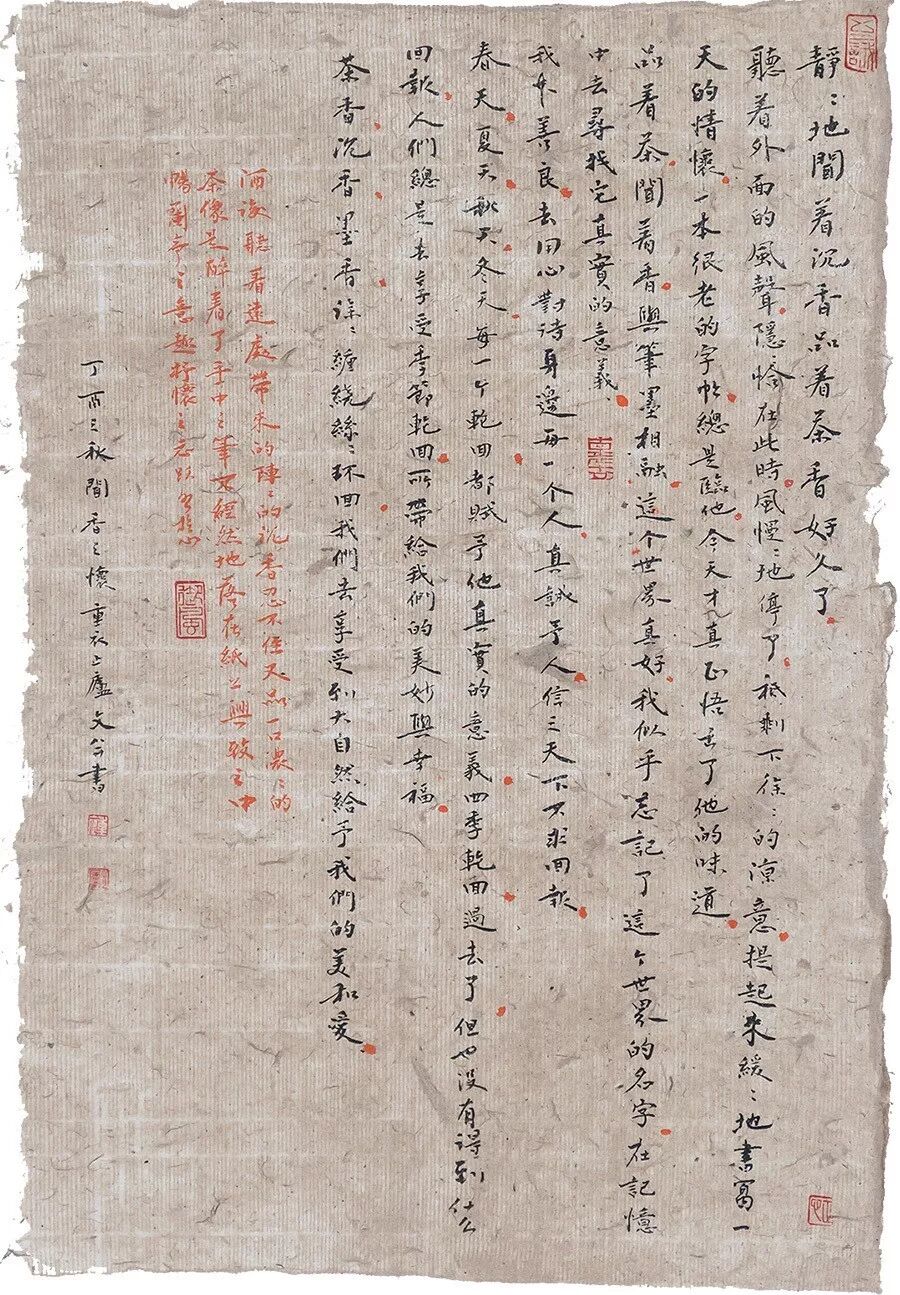 靜〻地聞着沉香品着茶香好久了
聽着外面的風聲隱恰在此時風慢〻地停了祗剩下徐〻的凉意提起來緩〻地書寫一
天的情懷一本很老的字帖總是臨他今天才真正悟出了他的味道
品着茶聞着香與筆墨相融這个世界真好我似乎忘記了這个世界的名字在記憶
中去尋找它真實的意義
我本善良去用心對待身邊每一个人真誠予人信三天下不求回報
春天夏天秋天冬天每一个乾回都賦予他真實的意義四季乾回過去了但也没有得到什么
回報人們總是去享受季節乾回所帶給我們的美妙與幸福
茶香沉香墨香徐〻纏繞絲〻环回我們去享受到大自然給予我們的美和愛
酒後聽着遠處帶來的陣〻的沉香忍不住又品一口濃〻的
茶像是醉着了手中之筆安經然地落在紙上興致之中
暢蘭亭之意趣抒懷之
丁酉之秋聞香之懷重衣上廬文公書